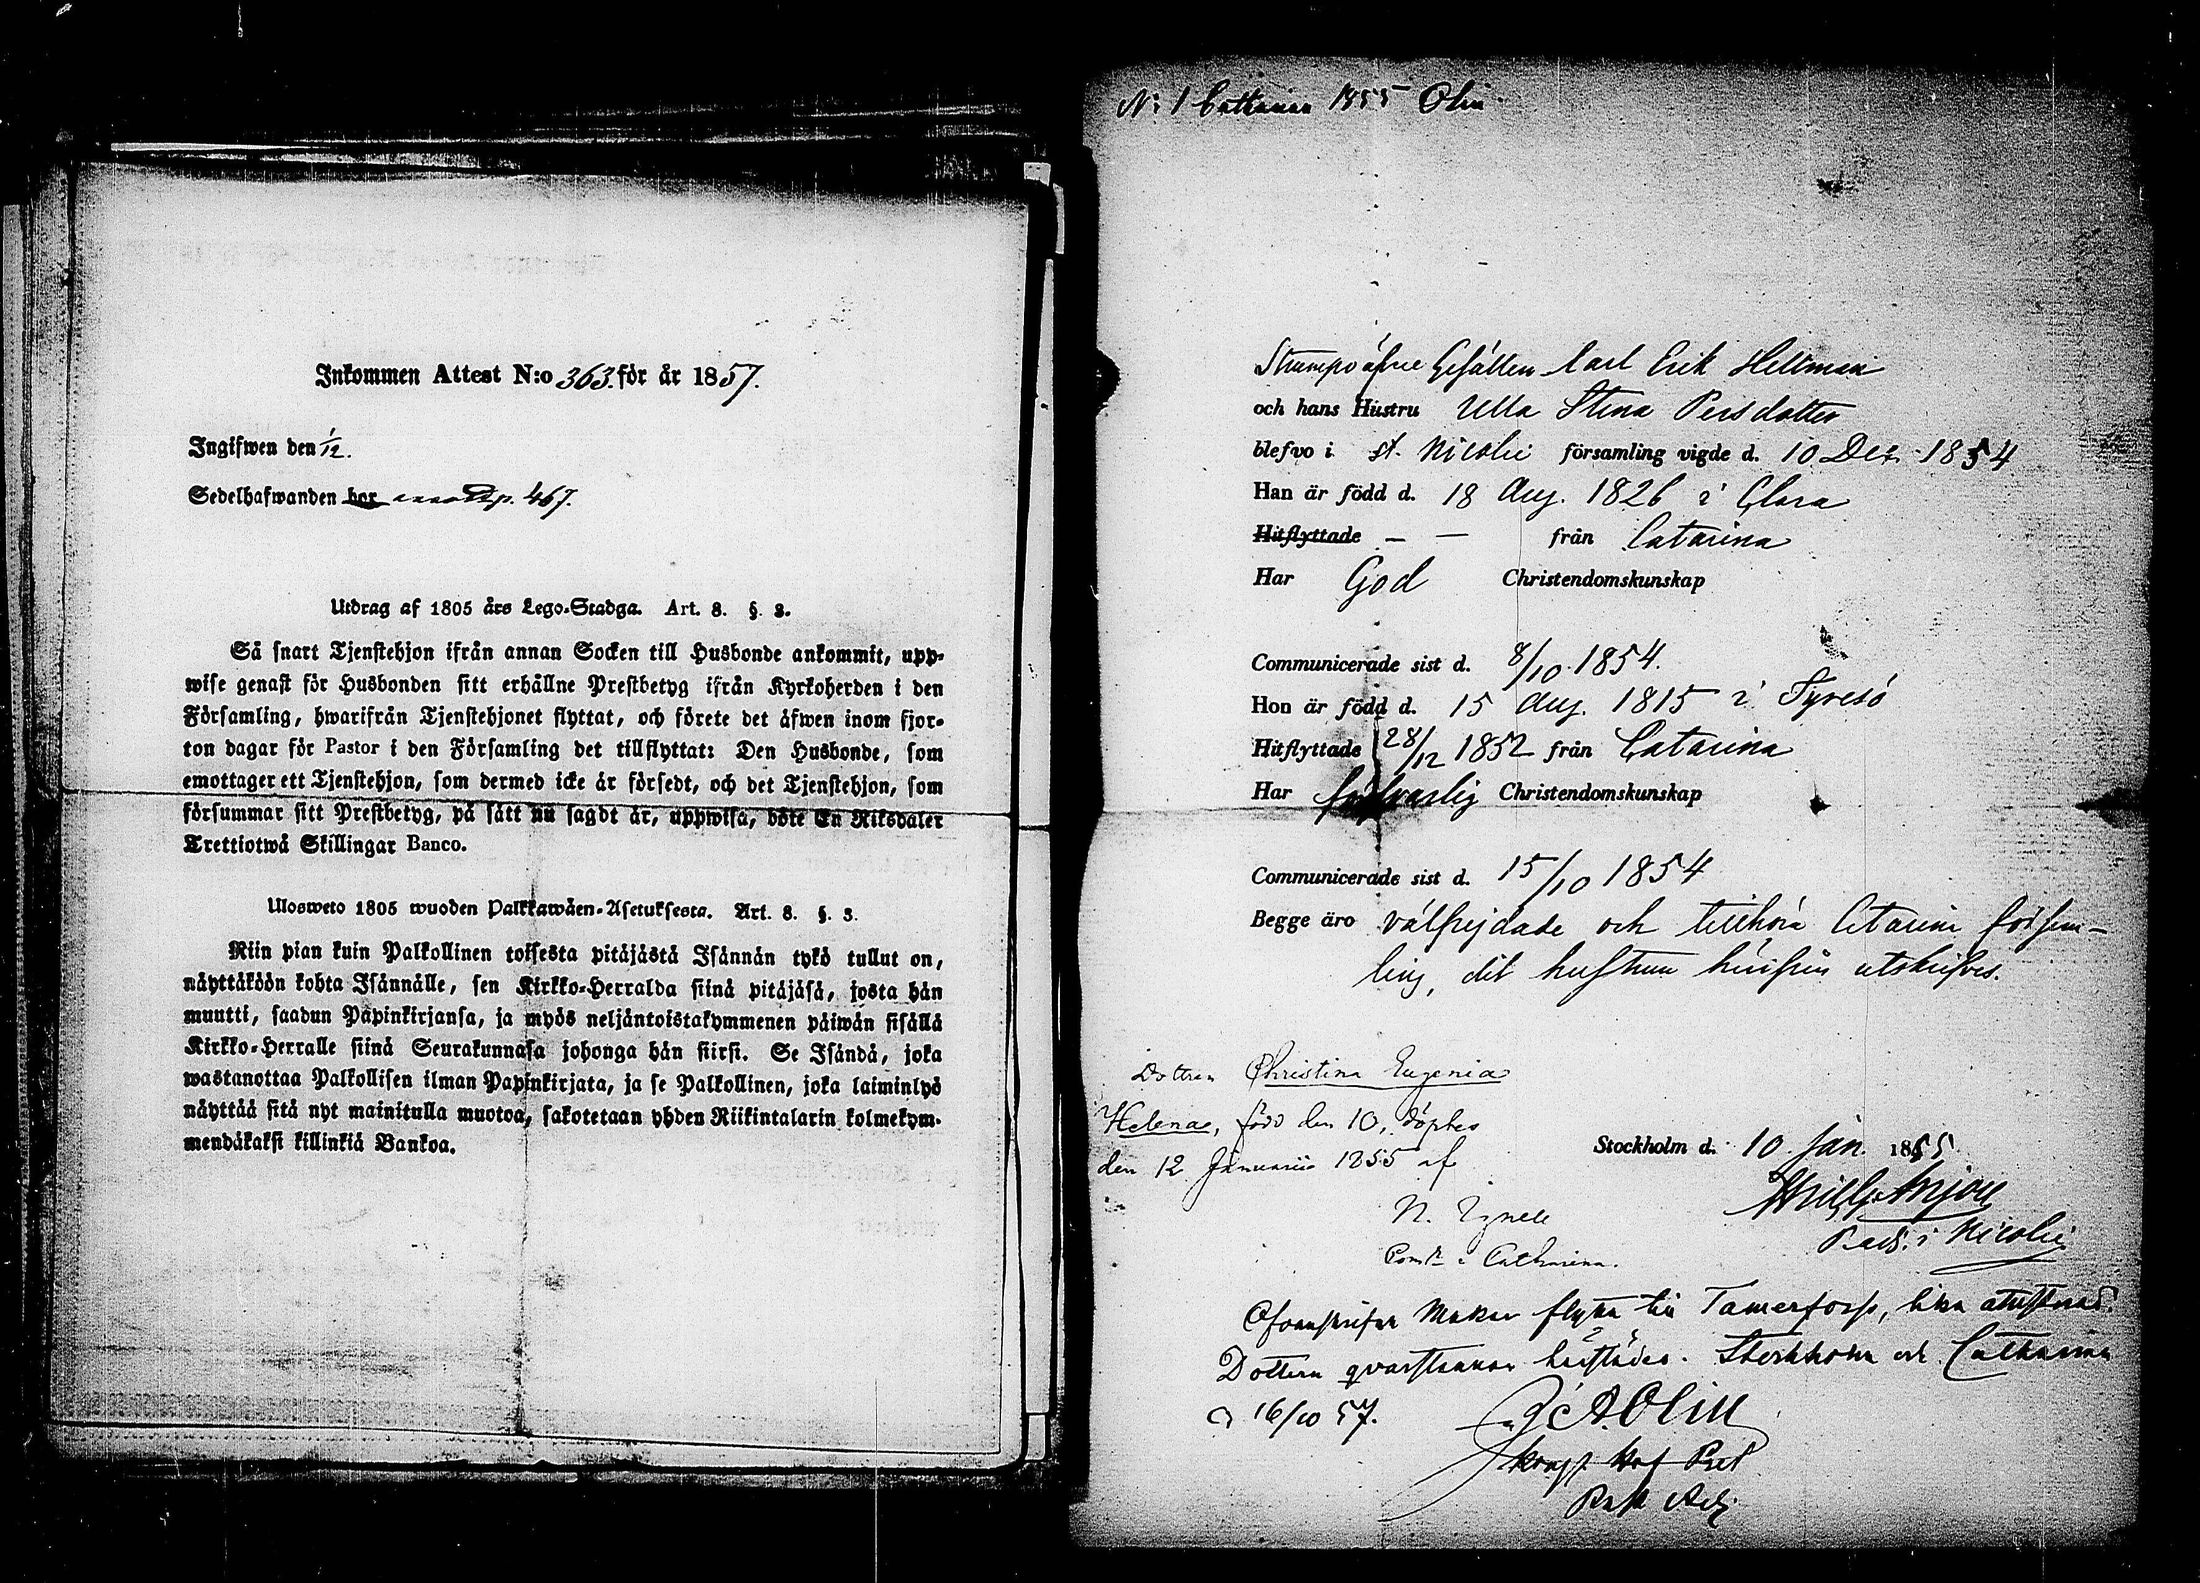 Inkommen Attest N:o 363. för år 1857.
Ingifwen den 1/12.
Sedelhafwanden bor p. 467.
Utdrag af 1805 års Lego-Stadga. Art. 8. §. 3.
Så snart Tjenstehjon ifrån annan Socken till Husbonde ankommit, upp-
wise genast för Husbonden sitt erhållne Prestbetyg ifrån Kyrkoherden i den
Församling, hwarifrån Tjenstehjonet flyttat, och förete det äfwen inom fjor-
ton dagar för Pastor i den Församling det tillflyttat: Den Husbonde, som
emottager ett Tjenstehjon, som dermed icke är försedt, och det Tjenstehjon, som
försummar sitt Prestbetyg, på sätt nu sagdt är, uppwisa, böte En Riksdaler
Trettiotwå Skillingar Banco.
Ulosweto 1805 wuoden Palkkawäen-Asetuksesta. Art. 8. §. 3.
Niin pian kuin Palkollinen toisesta pitäjästä Isännän tykö tullut on,
näyttäköön kohta Isännälle, sen Kirkko-Herralda siinä pitäjäsä, josta hän
muutti, saadun Päpinkirjansa, ja myös neljäntoistakymmenen päiwän sisällä
Kirkko-Herralle siinä Seurakunnasa johonga hän siirsi. Se Isändä, joka
wastanottaa Palkollisen ilman Papinkirjata, ja se Palkollinen, joka laiminlyö
näyttää sitä nyt mainitulla muotoa, sakotetaan yhden Riikintalarin kolmekym-
mendäkaksi killinkiä Bankoa.
N: 1 Cattarina 1855 Olin
Strumpväfvre Gesällen Carl Erik Hellman
och hans Hustru Ulla Stina Persdotter
blefvo i St. Nicolai församling vigde d. 10 Dec. 1854
Han är född d. 18 Aug. 1826 i Clara
Hitflyttade - - från Catarina
Har God Christendomskunskap
Communicerade sist d. 8/10 1854.
Hon är född d. 15 Aug. 1815 i Tyresö
Hitflyttade 28/12 1852 från Catarina
Har försvarlig Christendomskunskap
Communicerade sist d. 15/10 1854
Begge äro välfrejdade och tillhöra Catarina försam-
ling, dit hustrun härifrån utskrifves.
Dottren Christina Eugenia
Helena, född den 10, döptes
den 12 Januarii 1855 af
N. Ignell
Com:r i Catharina.
Stockholm d. 10 Jan. 1855.
Anjou
i Nicolai
Ofvanskrifne Makar flytta till Tamerfors, lika
Dottern qvarstannar härstädes. Stockholm och Catharina
d 16/10 57.
A Olin
Kongl Hof Pred
Past Adj.